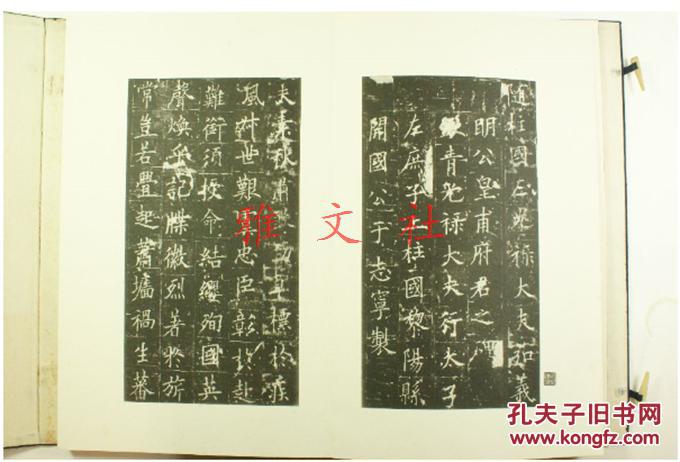 隨柱國左光祿大夫弘義
明公皇甫府君之
青光祿大夫行太子
左庶子上柱國黎陽縣
開國公于志寧製
夫素秋肅標於疾
風叔世艱忠臣彰於赴
難銜須授命結纓殉國英
聲煥乎記牒徽烈著於旂
常豈若疊起蕭墻禍生蕃
雅文社
孔夫子旧书网
kongfz.com